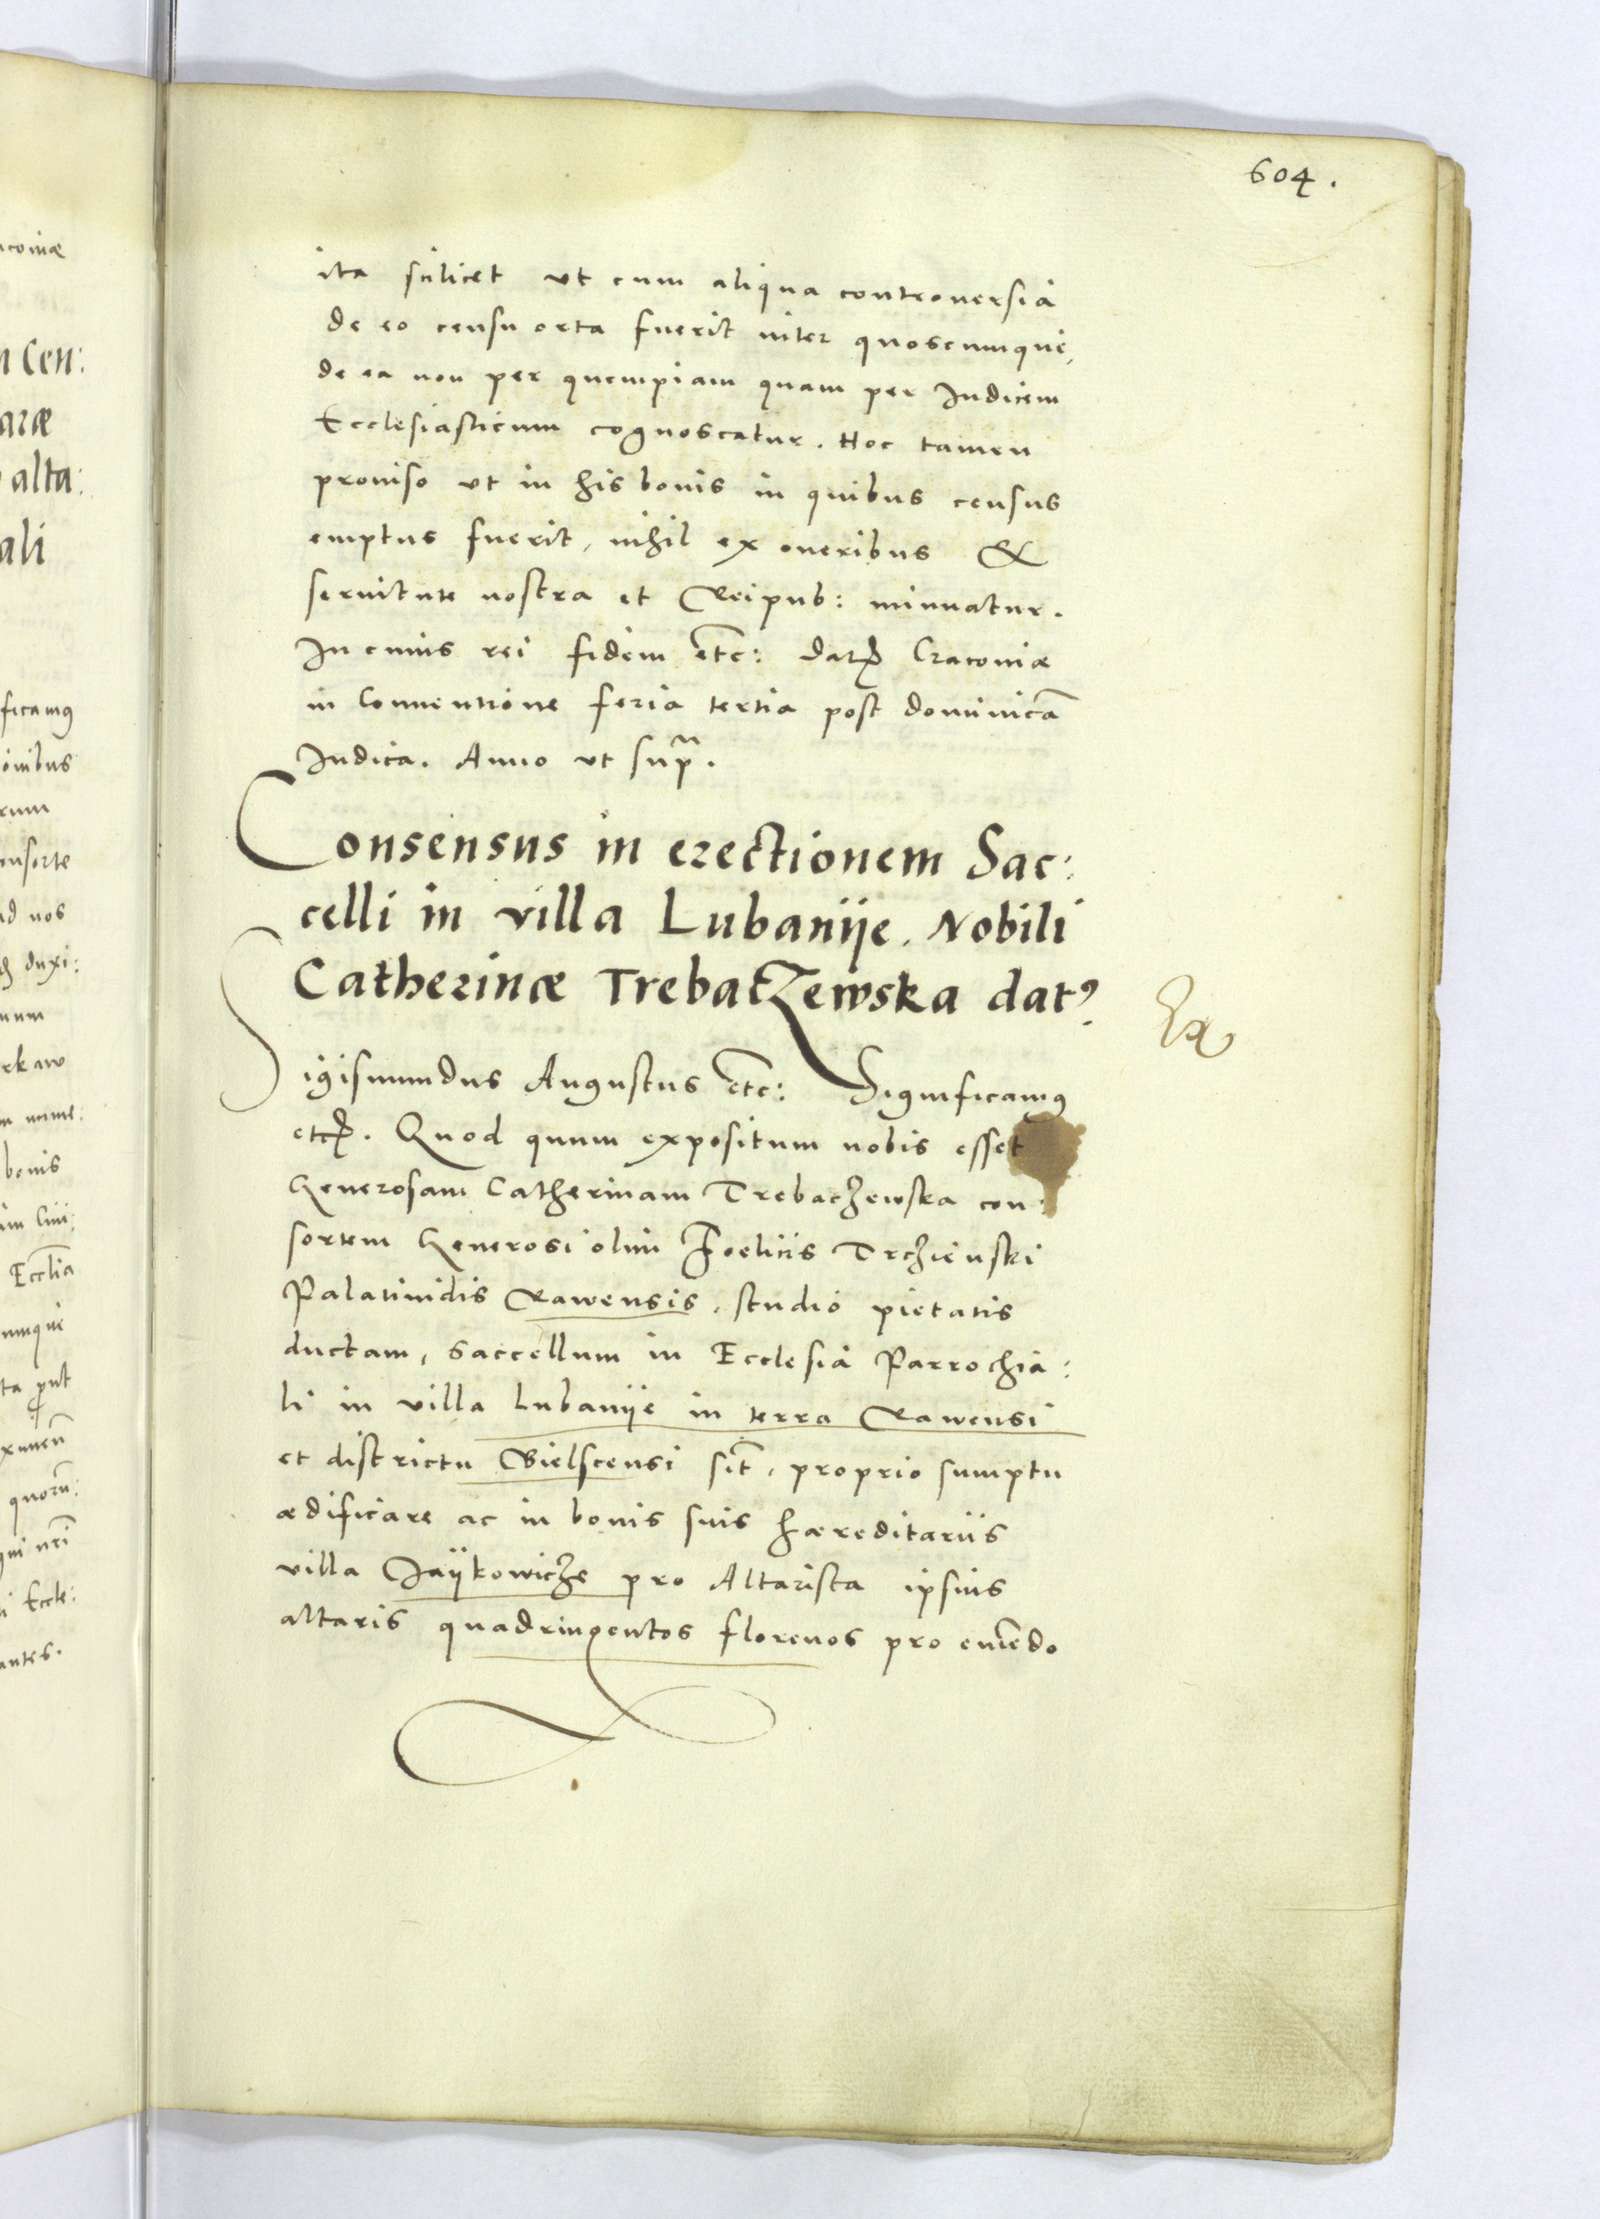 604.
ita scilicet vt cum aliqua controuersia
de eo censu orta fuerit inter quoscumque,
de ea non per quempiam quam per Iudicem
Ecclesiasticum cognoscatur. Hoc tamen
prouiso vt in his bonis in quibus census
emptus fuerit, nihil ex oneribus &
seruitute nostra et Reipub: minuatur.
In cuius rei fidem etc: Dat Cracouiæ
in Conuentione feria tertia post dominicā
Iudica. Anno vt sup.
Consensus in erectionem Sac:
celli in villa Lubanije. Nobili
Catherinæ Trebaczewska dat9
Ex
Sigismundus Augustus etc: Significam9
etc. Quod quum expositum nobis esset
Generosam Catherinam Trebaczewska con:
sortem Generosi olim Foelicis Trczienski
Palatinidis Rawensis, studio pietatis
ductam, Saccellum in Ecclesia Parrochia:
li in villa Lubanije in terra Rawensi
et districtu Bielscensi sit, proprio sumptu
ædificare ac in bonis suis hæreditariis
villa Jaijkowicze pro Altarista ipsius
altaris quadringentos florenos pro emēdo
aconiæ
n Cen:
aræ
alta:
ali
ficam9
onibus
rum
nsorte
ad nos
duxi:
num
rkaw
nume:
bonis
im Ciui:
Ecclia
umque
ta prout
quorū:
qui nri
i Eccle:
antes.